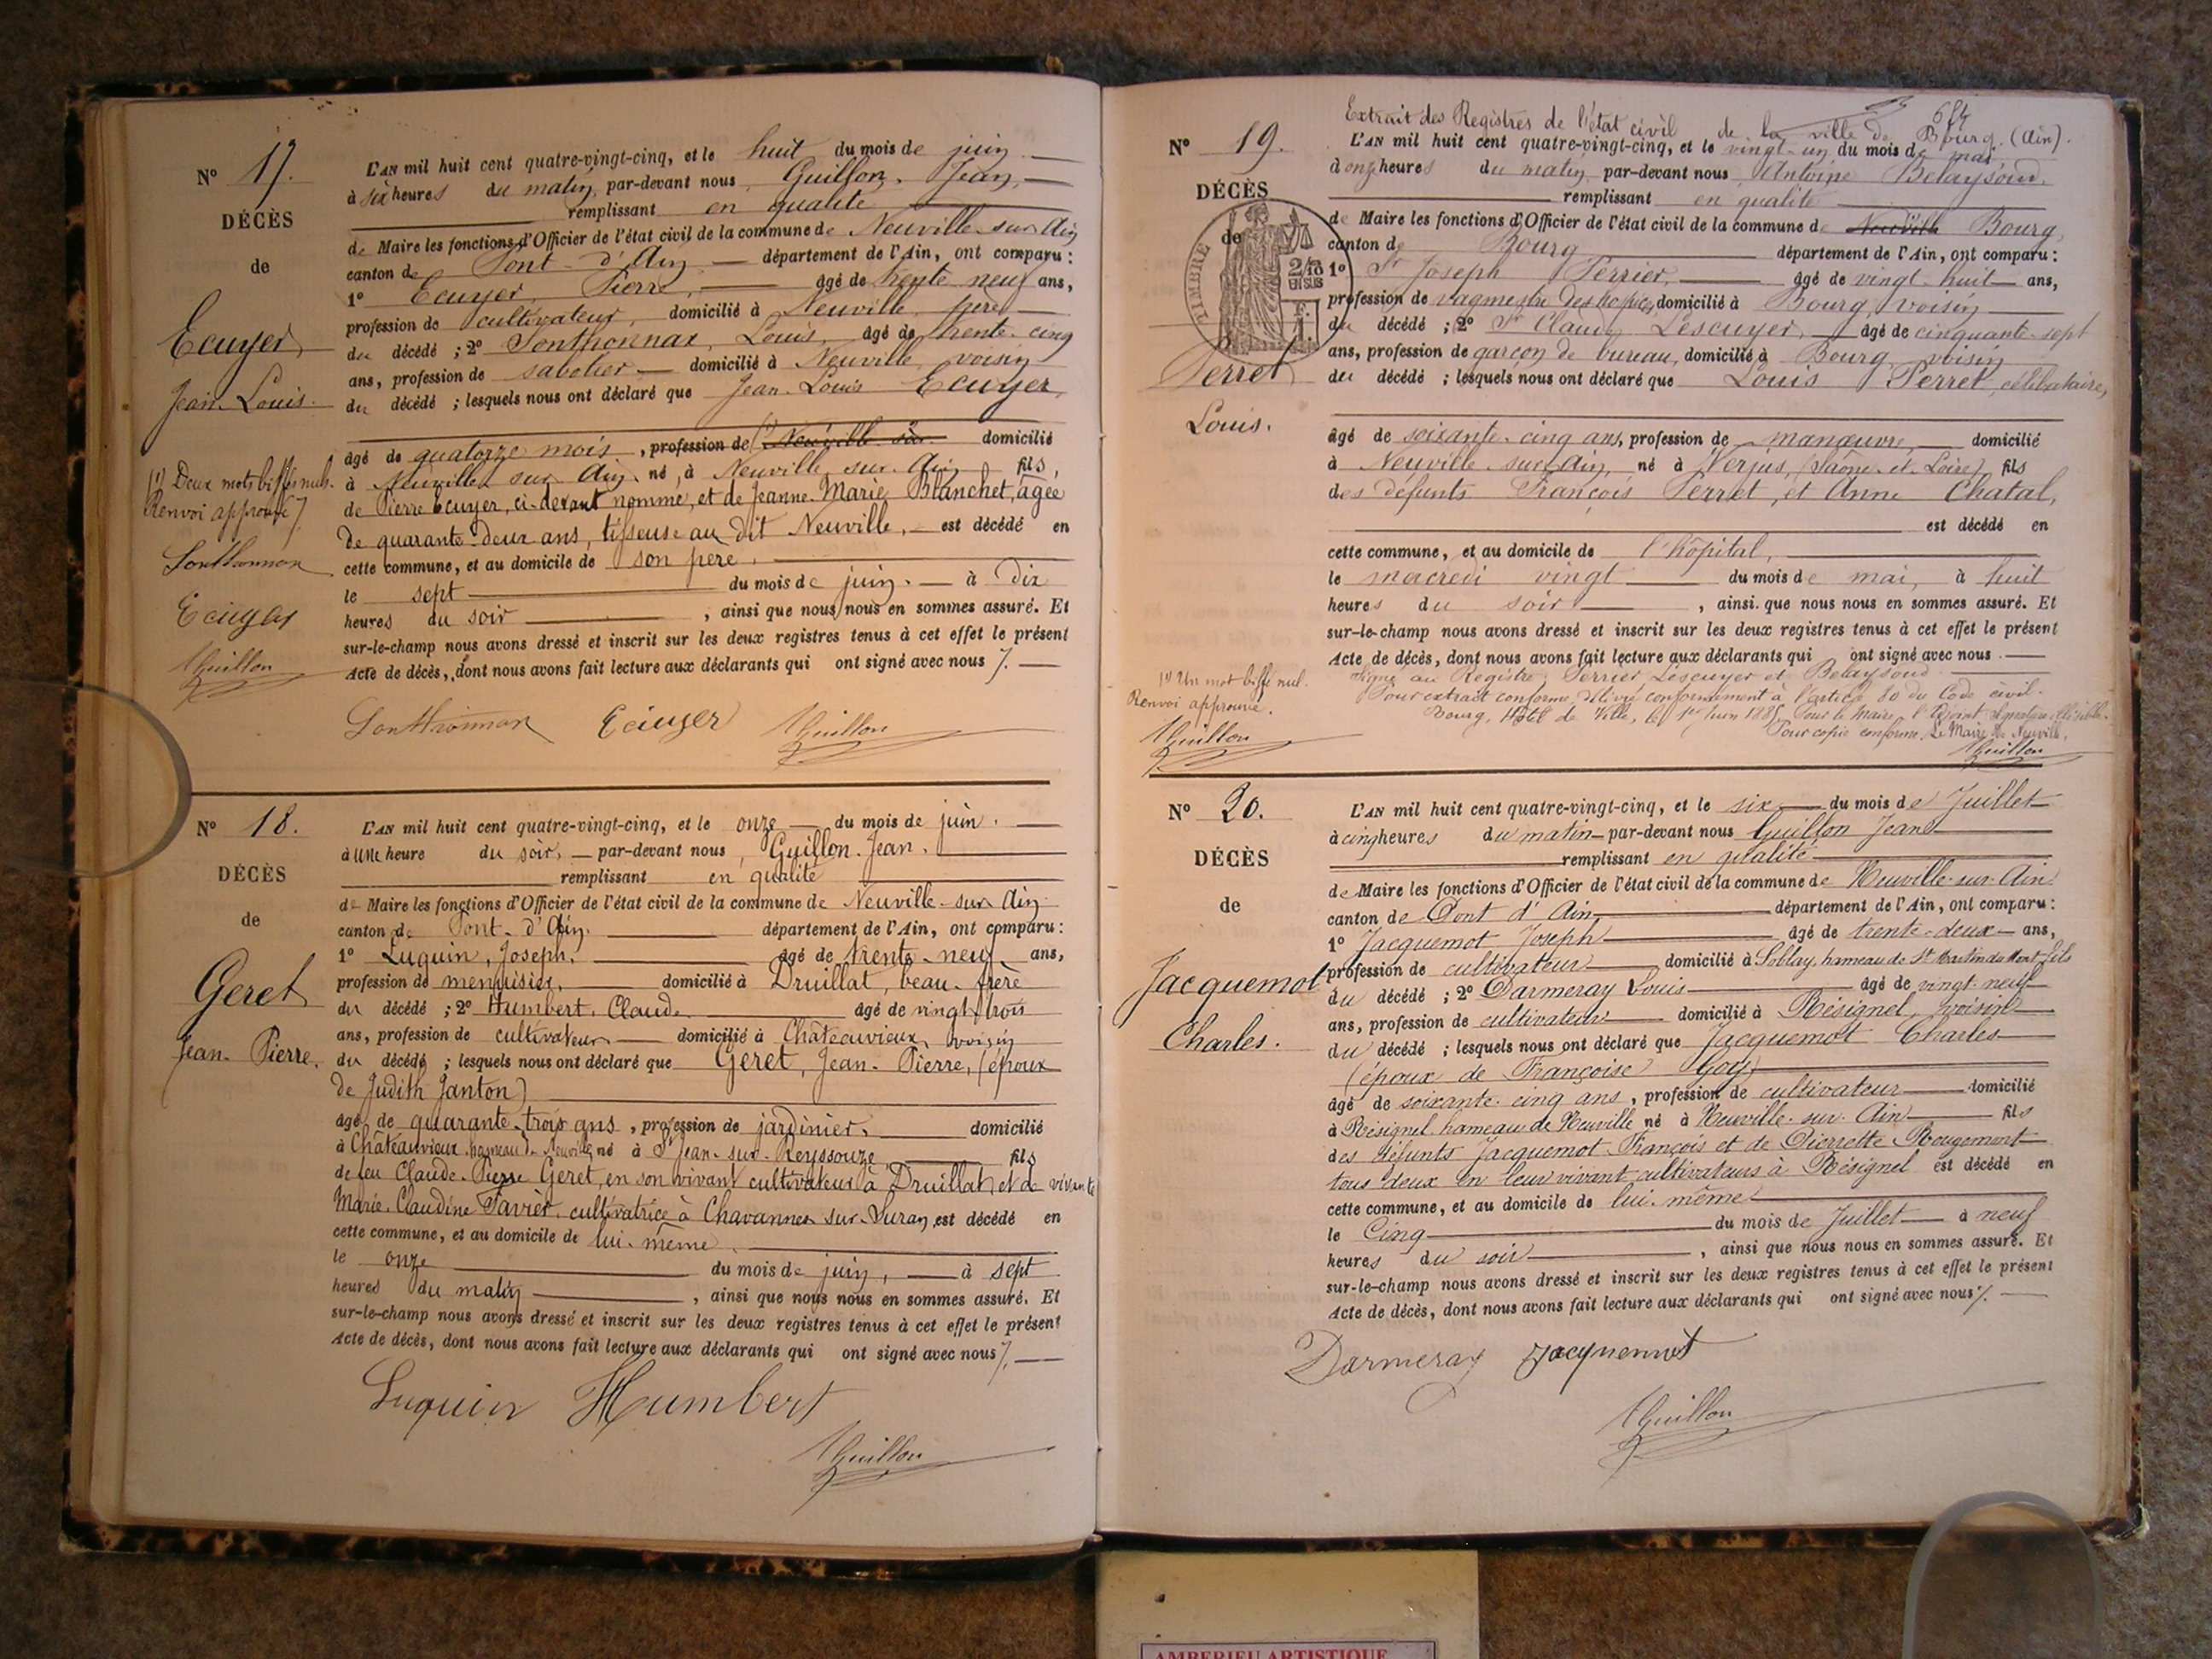 N° 17.
DÉCÈS
de
Ecuyer
Jean-Louis.
(1) Deux mots biffés nuls.
Renvoi approuvé
Sonthonnax
Ecuyer
Guillon
L'AN mil huit cent quatre-vingt-cinq, et le huit du mois de juin
à six heures du matin, par-devant nous, Guillon, Jean,
remplissant en qualité
de Maire les fonctions d'Officier de l'état civil de la commune de Neuville-sur-Ain
canton de Pont-d'Ain, département de l'Ain, ont comparu :
1° Ecuyer, Pierre, âgé de trente neuf ans,
profession de cultivateur, domicilié à Neuville, père
du décédé ; 2° Sonthonnax, Louis, âgé de trente-cinq
ans, profession de sabotier domicilié à Neuville, voisin
du décédé ; lesquels nous ont déclaré que Jean-Louis Ecuyer,
âgé de quatorze mois, profession de (1) Neuville sur domicilié
à Neuville sur Ain, né, à Neuville sur Ain, fils,
de Pierre Ecuyer, ci-devant nommé, et de Jeanne-Marie Blanchet, âgée
de quarante-deux ans, tisseuse au dit Neuville, est décédé en
cette commune, et au domicile de son père,
le sept du mois de juin. à dix
heures du soir, ainsi que nous nous en sommes assuré. Et
sur-le-champ nous avons dressé et inscrit sur les deux registres tenus à cet effet le présent
Acte de décès, dont nous avons fait lecture aux déclarants qui ont signé avec nous
Sonthonnax Ecuyer Guillon
N° 18.
DÉCÈS
de
Geret
Jean-Pierre.
L'AN mil huit cent quatre-vingt-cinq, et le onze du mois de juin.
à une heure du soir, par-devant nous, Guillon-Jean.
remplissant en qualité
de Maire les fonctions d'Officier de l'état civil de la commune de Neuville-sur-Ain
canton de Pont-d'Ain. département de l'Ain, ont comparu :
1° Luquin, Joseph. âgé de trente-neuf ans,
profession de menuisier, domicilié à Druillat, beau-frère
du décédé ; 2° Humbert, Claude âgé de vingt trois
ans, profession de cultivateur, domicilié à Châteauvieux, voisin
du décédé ; lesquels nous ont déclaré que Geret, Jean-Pierre, (époux
de Judith Janton)
âgé de quarante-trois ans, profession de jardinier, domicilié
à Châteauvieux, hameau de Neuville, né à St Jean-sur-Reyssouze fils
de feu Claude-Pierre Geret, en son vivant cultivateur à Druillat et de vivante
Marie-Claudine Tavier, cultivatrice à Chavannes sur Suran, est décédé en
cette commune, et au domicile de lui-même.
le onze du mois de juin, à sept
heures du matin, ainsi que nous nous en sommes assuré. Et
sur-le-champ nous avons dressé et inscrit sur les deux registres tenus à cet effet le présent
Acte de décès, dont nous avons fait lecture aux déclarants qui ont signé avec nous
Luquin Humbert
Guillon
684
Extrait des Registres de l'état civil de la ville de Bourg (Ain).
N° 19.
DÉCÈS
de
TIMBRE
2/10 EN SUS
Perret
Louis.
(1) Un mot biffé nul.
Renvoi approuvé.
Guillon
L'AN mil huit cent quatre-vingt-cinq, et le vingt-un du mois de mai
à onze heures du matin, par-devant nous, Antoine Belaysoud,
remplissant en qualité
de Maire les fonctions d'Officier de l'état civil de la commune de Neuville Bourg,
canton de Bourg département de l'Ain, ont comparu :
1° Sr Joseph Perrier, âgé de vingt-huit ans,
profession de vaguemestre des hospices, domicilié à Bourg, voisin
du décédé ; 2° Sr Claude Lescuyer, âgé de cinquante-sept
ans, profession de garçon de bureau, domicilié à Bourg, voisin
du décédé ; lesquels nous ont déclaré que Louis Perret, célibataire,
âgé de soixante-cinq ans, profession de manœuvre, domicilié
à Neuville-sur-Ain, né à Verjus, (Saône-et-Loire) fils
des défunts François Perret, et Anne Chatal,
est décédé en
cette commune, et au domicile de l'hôpital,
le mercredi vingt du mois de mai, à huit
heures du soir, ainsi que nous nous en sommes assuré. Et
sur-le-champ nous avons dressé et inscrit sur les deux registres tenus à cet effet le présent
Acte de décès, dont nous avons fait lecture aux déclarants qui ont signé avec nous.
Signé au Registre, Perrier, Lescuyer et Belaysoud
Pour extrait conforme, délivré conformément à l'article 80 du Code civil.
Bourg, Hôtel de Ville, le 1er Juin 1885, Pour le Maire, l'Adjoint, Signature illisible.
Pour copie conforme, Le Maire de Neuville,
Guillon
N° 20.
DÉCÈS
de
Jacquemot
Charles.
L'AN mil huit cent quatre-vingt-cinq, et le six du mois de Juillet
à cinq heures du matin par-devant nous Guillon Jean
remplissant en qualité
de Maire les fonctions d'Officier de l'état civil de la commune de Neuville-sur-Ain
canton de Pont d'Ain, département de l'Ain, ont comparu :
1° Jacquemot Joseph âgé de trente-deux ans,
profession de cultivateur domicilié à Soblay, hameau de St Martin du Mont, fils
du décédé ; 2° Darmeray Louis âgé de vingt-neuf
ans, profession de cultivateur domicilié à Résignel, voisin
du décédé ; lesquels nous ont déclaré que Jacquemot Charles
(époux de Françoise Goy)
âgé de soixante-cinq ans, profession de cultivateur domicilié
à Résignel hameau de Neuville né à Neuville-sur-Ain fils
des défunts Jacquemot François et de Pierrette Rougemont
tous deux en leur vivant cultivateurs à Résignel est décédé en
cette commune, et au domicile de lui-même
le Cinq du mois de Juillet à neuf
heures du soir, ainsi que nous nous en sommes assuré. Et
sur-le-champ nous avons dressé et inscrit sur les deux registres tenus à cet effet le présent
Acte de décès, dont nous avons fait lecture aux déclarants qui ont signé avec nous
Darmeray Jacquemot
Guillon
AMBERIEU ARTISTIQUE